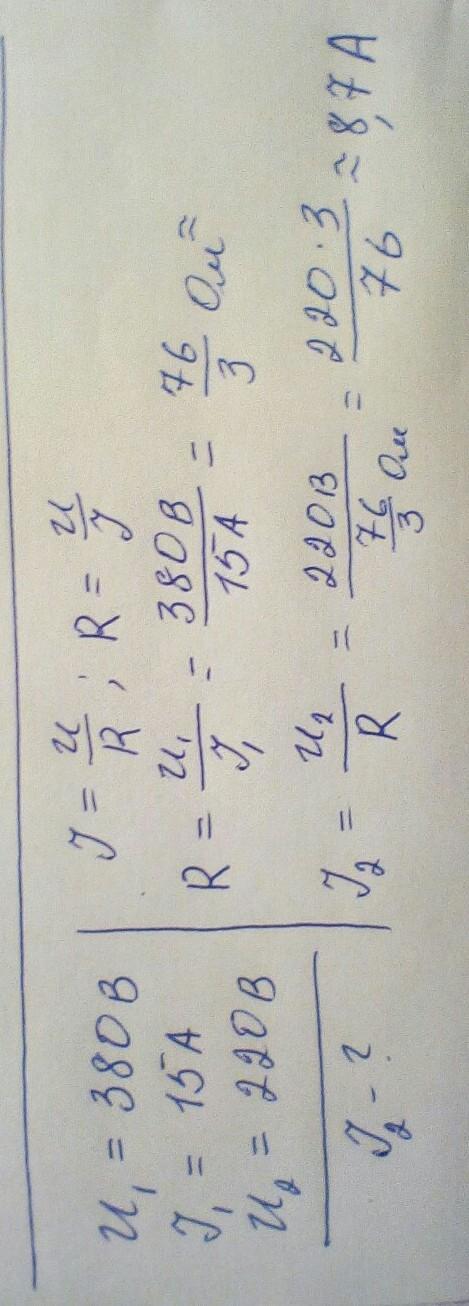 U₁ = 380 В
J₁ = 15 А
U₂ = 220 В
J₂ - ?
J = U/R ; R = U/J
R = U₁/J₁ = 380 В/15 А = 76/3 Ом ≈
J₂ = U₂/R = 220 В/(76/3 Ом) = 220 · 3/76 ≈ 8,7 А